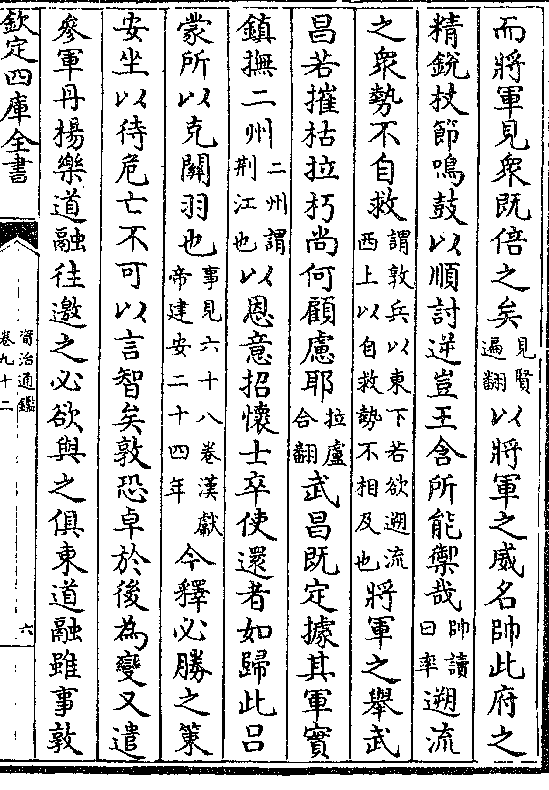 而將軍見衆既倍之矣見賢遍翻以將軍之威名帥此府之
精鋭杖節鳴鼓以順討逆豈王含所能禦哉帥讀曰率遡流
之衆勢不自救謂敦兵以東下若欲遡流西上以自救勢不相及也將軍之舉武
昌若摧枯拉朽尚何顧慮耶拉盧合翻武昌既定據其軍實
鎮撫二州二州謂荆江也以恩意招懷士卒使還者如歸此吕
蒙所以克關羽也事見六十八卷漢獻帝建安二十四年今釋必勝之策
安坐以待危亡不可以言智矣敦恐卓於後為變又遣
參軍丹楊樂道融往邀之必欲與之俱東道融雖事敦
欽定四庫全書
資治通鑑
卷九十二
六